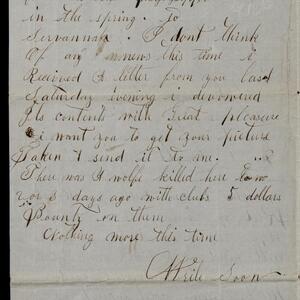 in the spring. To
Servannah. I dont think
Of any mnews this time I
Received A letter from you last
Saturday evening i devowered
Its contents with Great pleasure
i want you to get your picture
Taken & send it to me.
There was A wolfe killed here two
2 or 3 days ago with clubs 5 dollars
Bounty on them
Nothing more this time
Write Soon